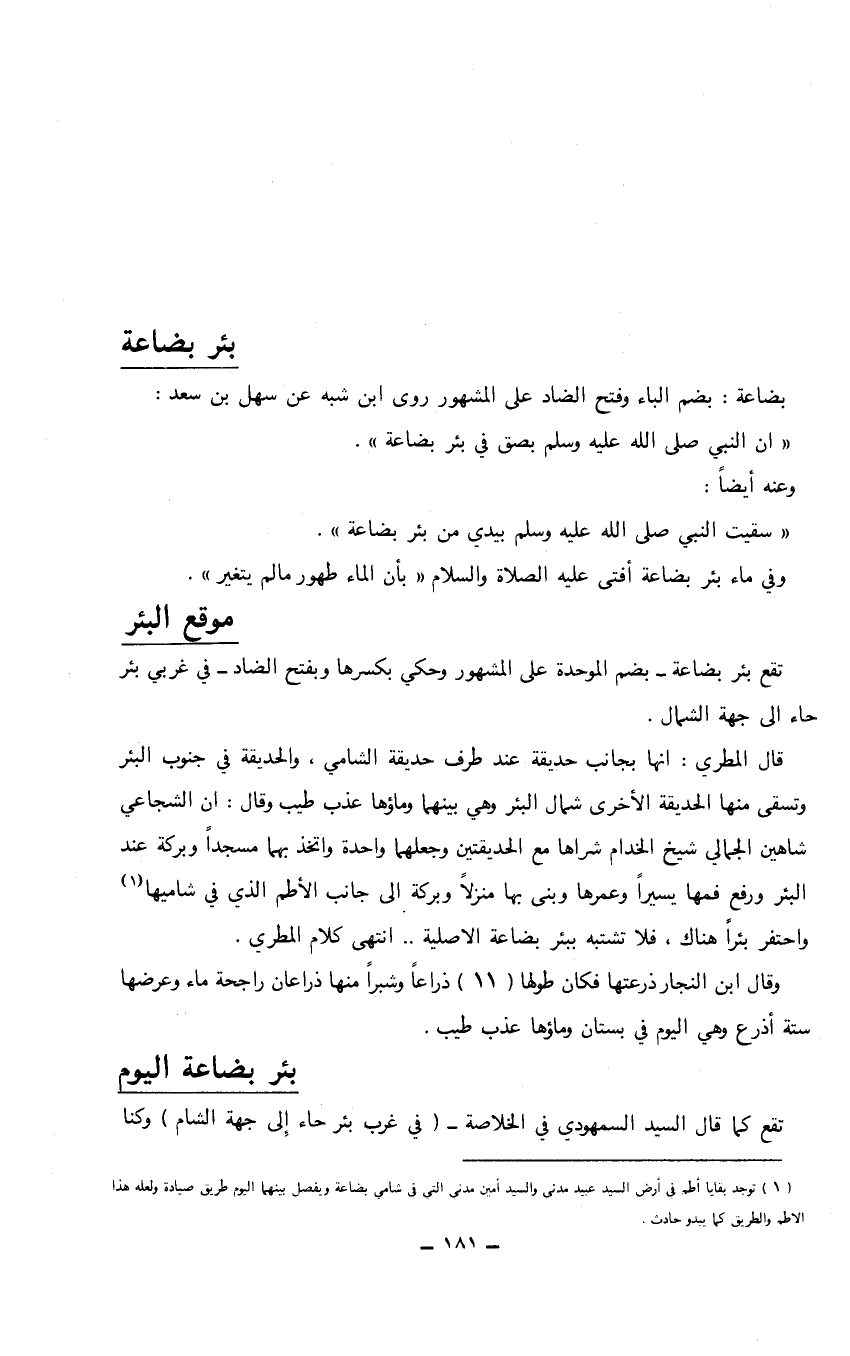 بئر بضاعة
بضاعة : بضم الباء وفتح الضاد على المشهور روى ابن شبه عن سهل بن سعد :
« ان النبي صلى الله عليه وسلم بصق في بئر بضاعة » .
وعنه أيضاً :
« سقيت النبي صلى الله عليه وسلم بيدي من بئر بضاعة » .
وفي ماء بئر بضاعة أفتى عليه الصلاة والسلام « بأن الماء طهور مالم يتغير » .
موقع البئر
تقع بئر بضاعة ـ بضم الموحدة على المشهور وحكي بكسرها وبفتح الضاد ـ في غربي بئر
حاء الى جهة الشمال .
قال المطري : انها بجانب حديقة عند طرف حديقة الشامي ، والحديقة في جنوب البئر
وتسقى منها الحديقة الأخرى شمال البئر وهي بينهما وماؤها عذب طيب وقال : ان الشجاعي
شاهين الجمالي شيخ الخدام شراها مع الحديقتين وجعلهما واحدة واتخذ بهما مسجداً وبركة عند
البئر ورفع فمها يسيراً وعمرها وبنى بها منزلاً وبركة الى جانب الأطم الذي في شاميها(١)
واحتفر بئراً هناك ، فلا تشتبه ببئر بضاعة الاصلية .. انتهى كلام المطري .
وقال ابن النجار ذرعتها فكان طولها ( ١١ ) ذراعاً وشبراً منها ذراعان راجحة ماء وعرضها
ستة أذرع وهي اليوم في بستان وماؤها عذب طيب .
بئر بضاعة اليوم
تقع كما قال السيد السمهودي في الخلاصة ـ ( في غرب بئر حاء إلى جهة الشام ) وكنا
( ١ ) توجد بقايا أطم في أرض السيد عبيد مدني والسيد أمين مدني التي في شامي بضاعة ويفصل بينهما اليوم طريق صيادة ولعله هذا
الاطم والطريق كما يبدو حادث .
ـ ١٨١ ـ